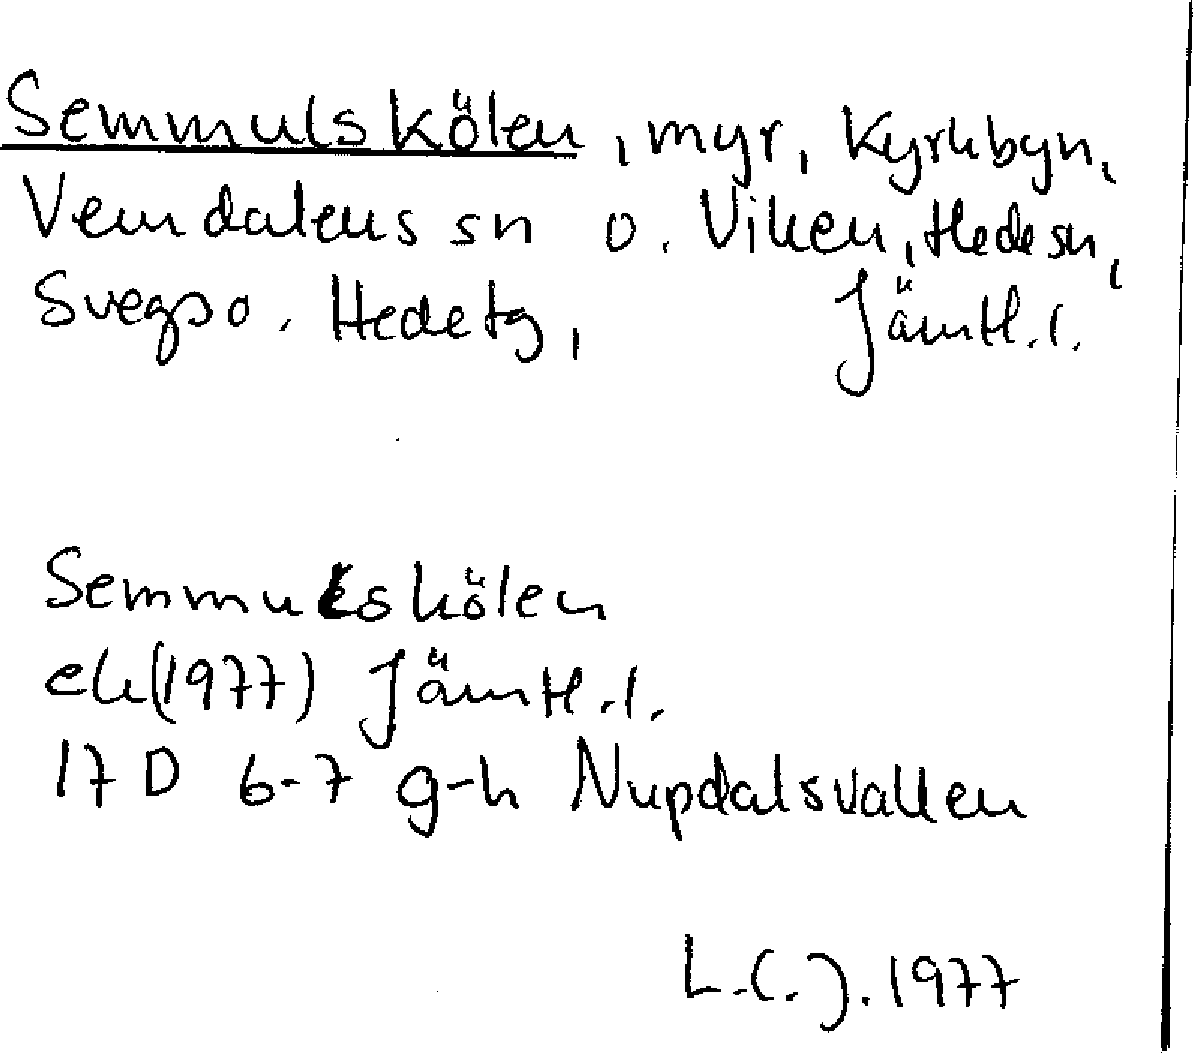 Semmulskölen, myr, Kyrkbyn,
Vemdalens sn o. Viken, Hede sn,
Svegs o. Hede tg, Jämtl. l.
Semmulskölen
ek(1977) Jämtl. l.
17 D 6-7 g-h Nupdalsvallen
L.C.J. 1977